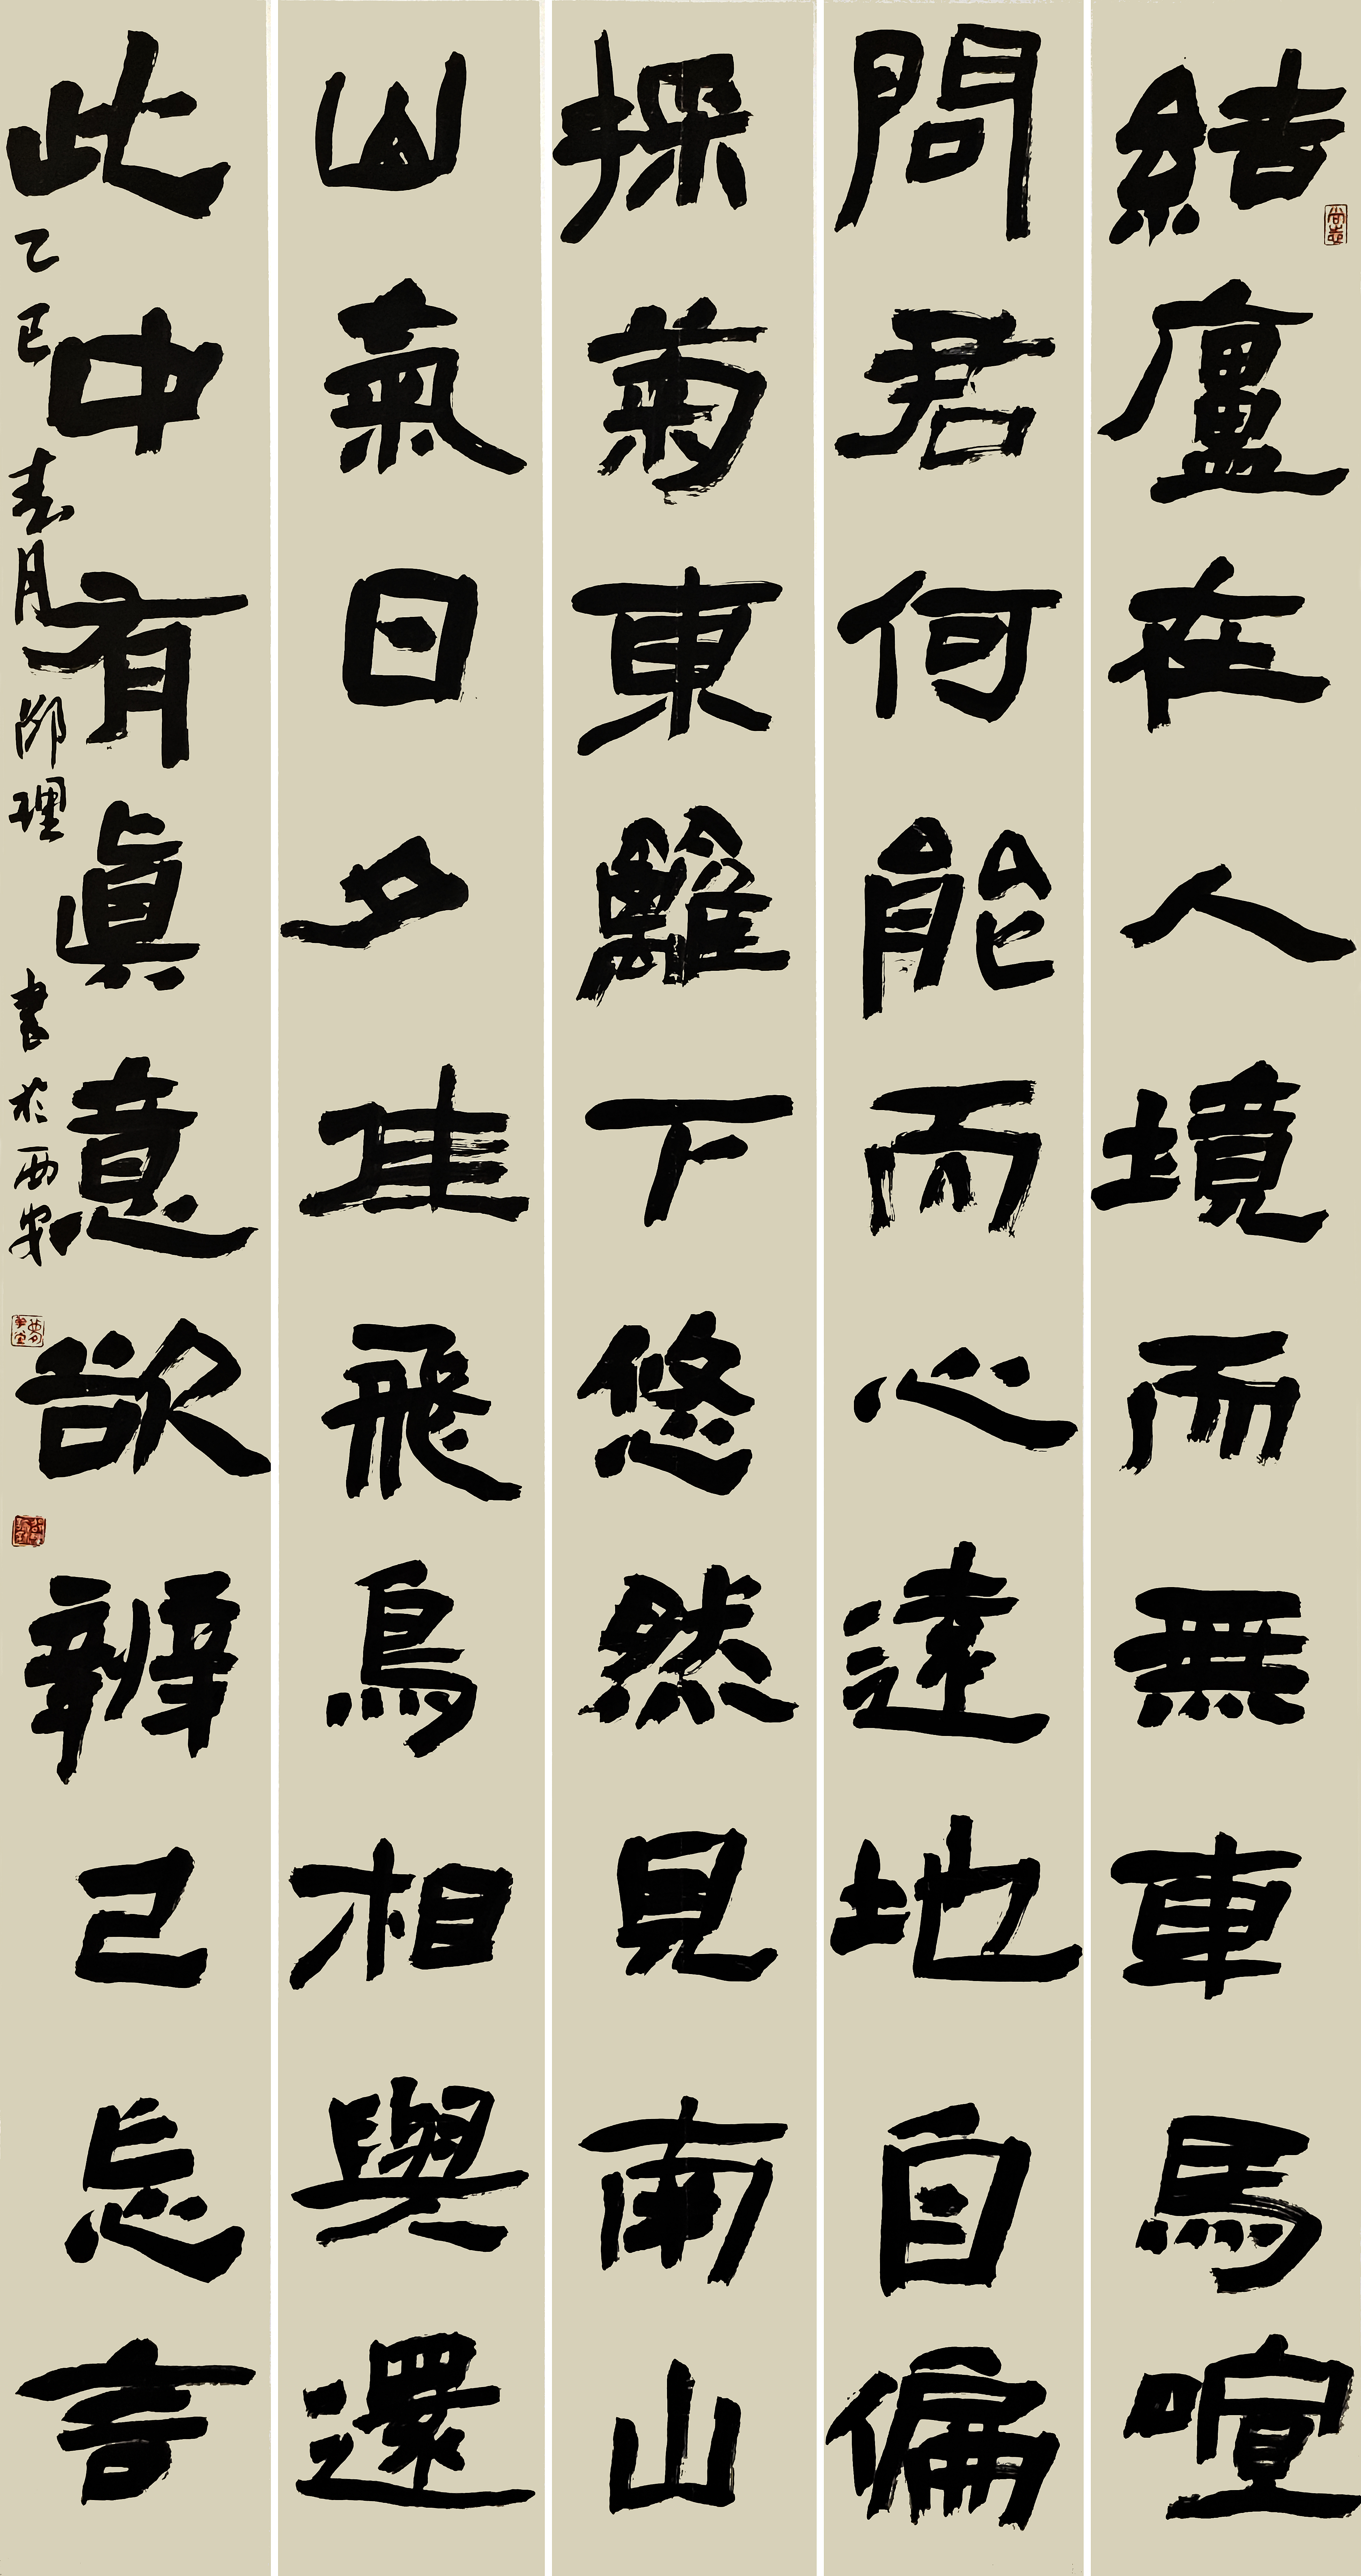 結廬在人境而無車馬喧
問君何能而心遠地自偏
採菊東籬下悠然見南山
山氣日夕佳飛鳥相與還
此中有眞意欲辨已忘言
乙巳春月邵理書於西安